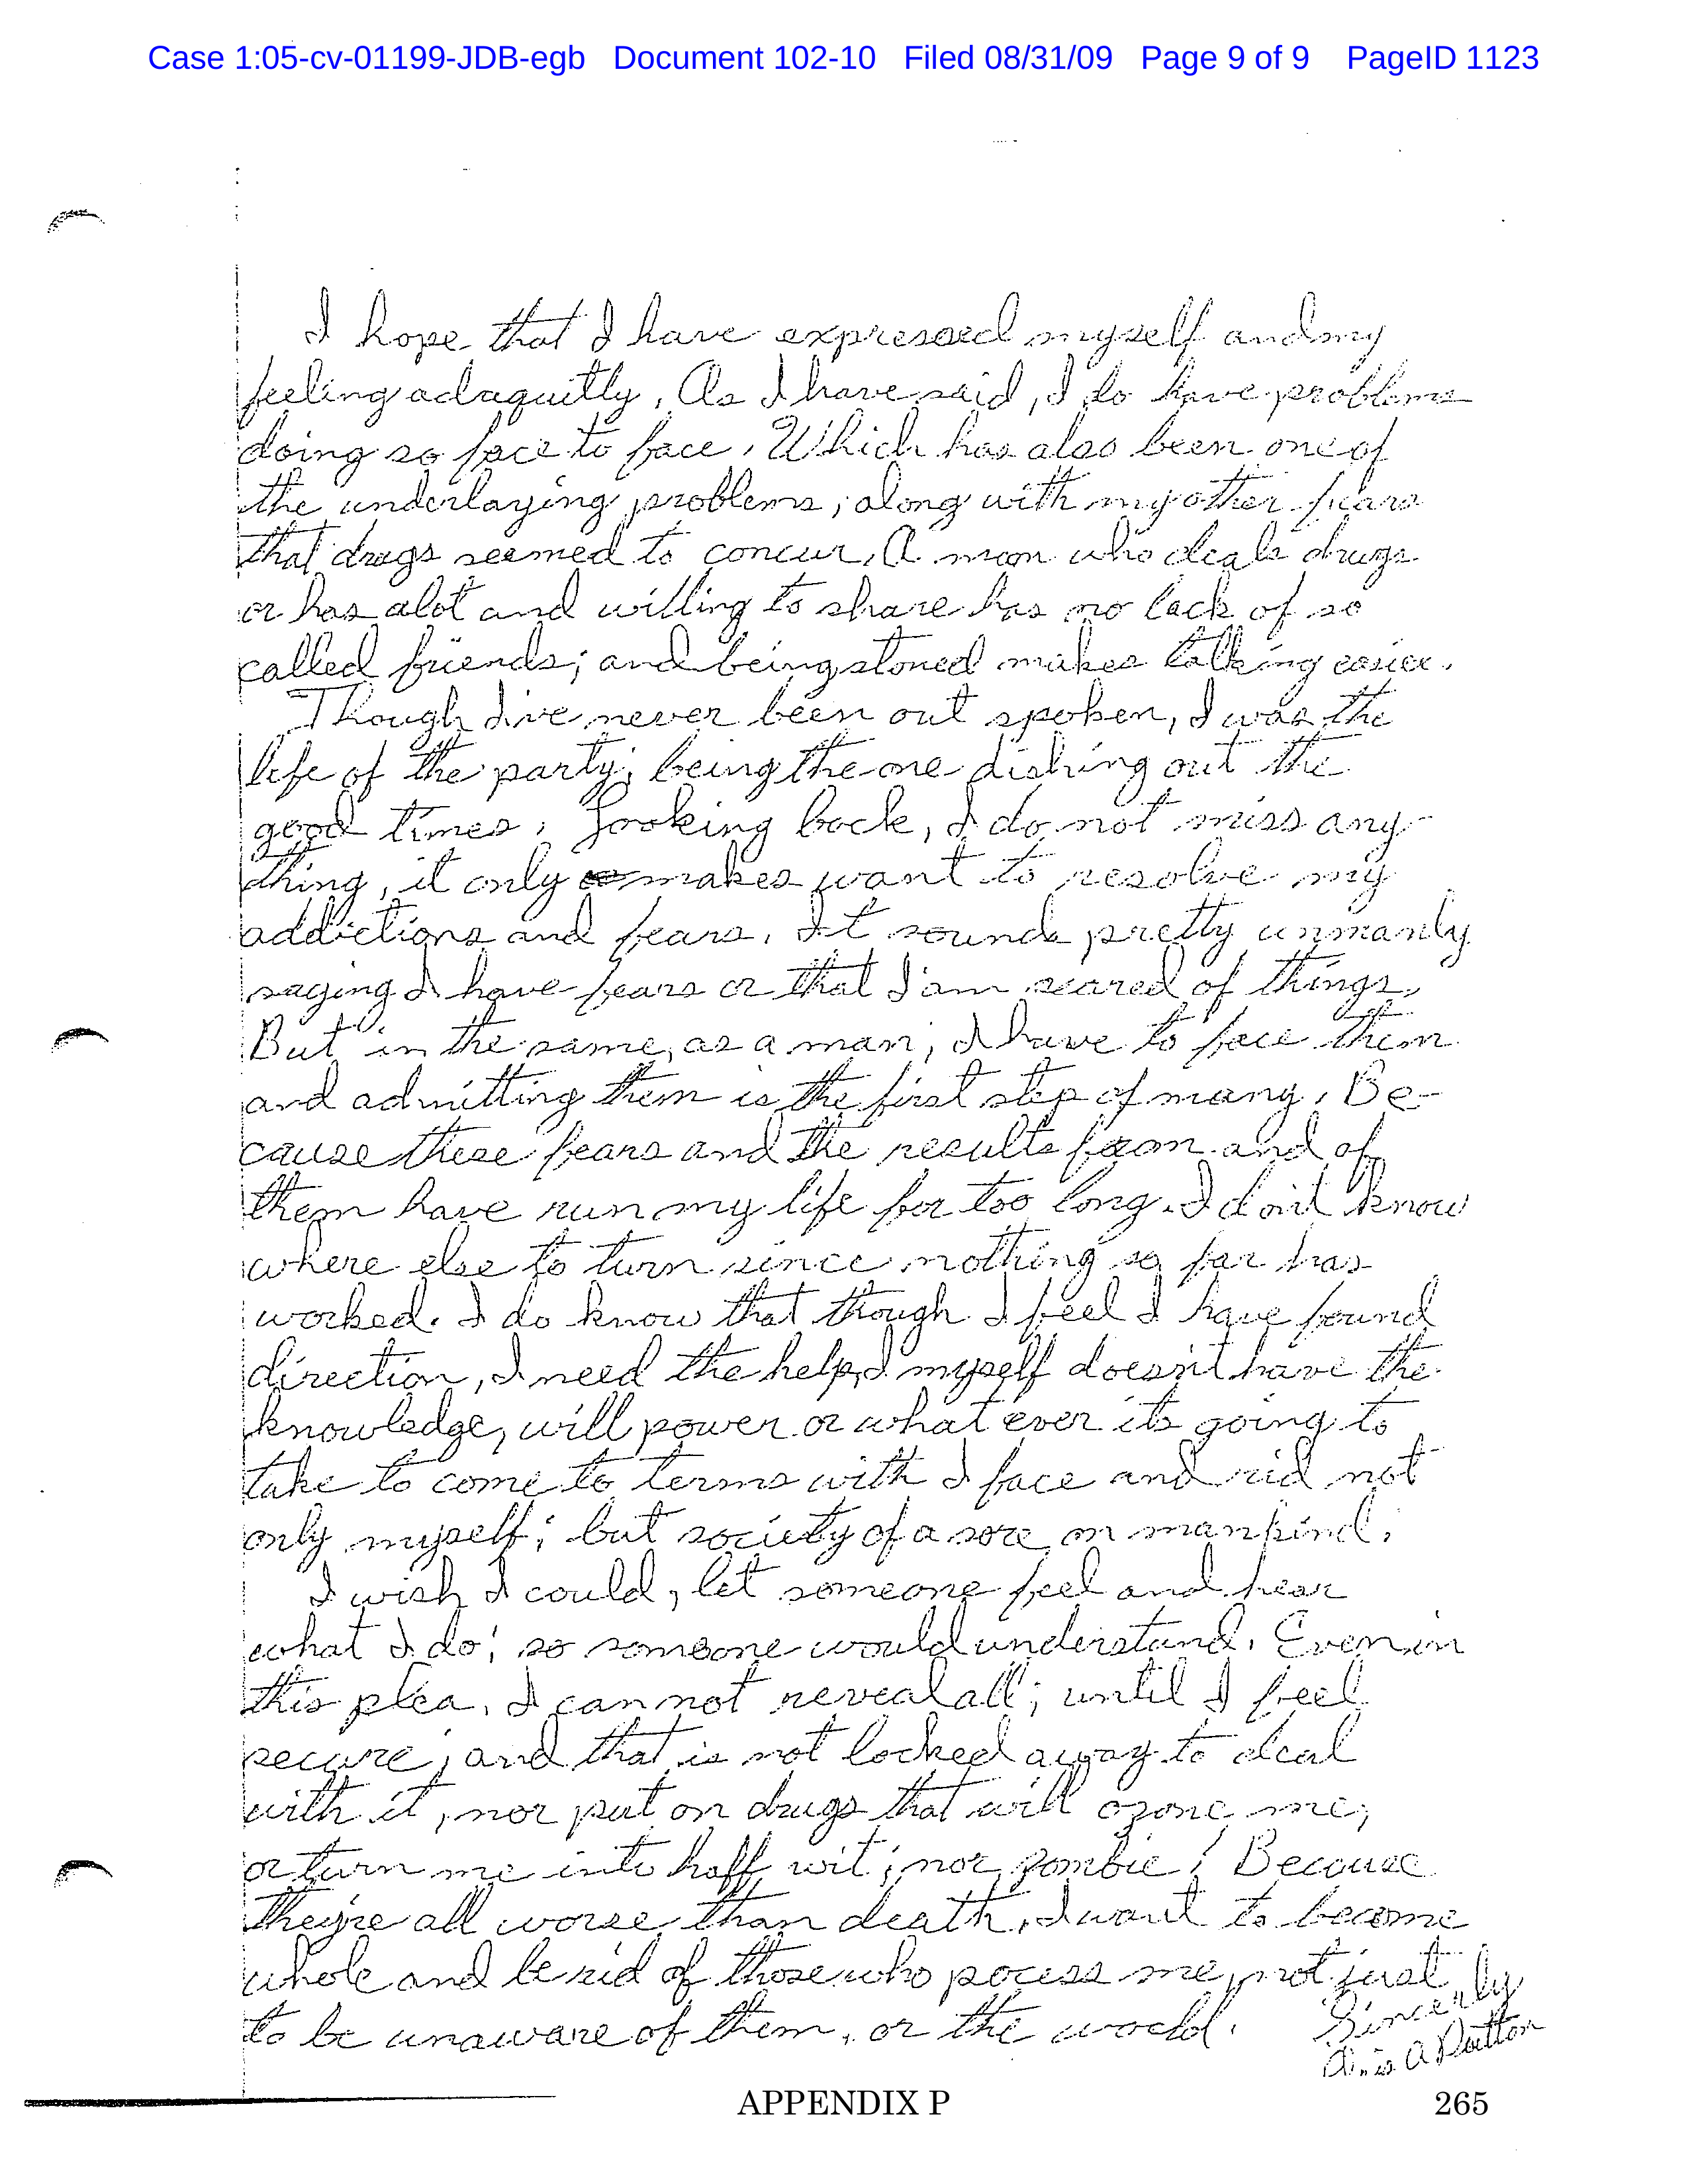 Case 1:05-cv-01199-JDB-egb Document 102-10 Filed 08/31/09 Page 9 of 9 PageID 1123
I hope that I have expressed myself and my
feeling adaquitly. As I have said, I do have problems
doing so face to face. Which has also been one of
the underlaying problems, along with my other fears
that drugs seemed to concur. A man who deals drugs
or has alot and willing to share has no lack of so
called friends; and being stoned makes talking easier.
Though I've never been out spoken, I was the
life of the party; being the one dishing out the
good times. Looking back, I do not miss any-
thing, it only makes want to resolve my
addictions and fears. It sounds pretty unmanly
saying I have fears or that I'am scared of things.
But in the same, as a man, I have to face them
and admitting them is the first step of many. Be-
cause these fears and the results from and of
them have run my life for too long. I don't know
where else to turn since nothing so far has
worked. I do know that though I feel I have found
direction, I need the help, I myself doesn't have the
knowledge, will power or what ever its going to
take to come to terms with I face and rid not
only myself; but society of a sore on mankind.
I wish I could, let someone feel and hear
what I do; so someone would understand. Even in
this plea, I can not reveal all; until I feel
secure; and that is not locked away to deal
with it, nor put on drugs that will ozone me,
or turn me into half wit; nor zombie! Because
they're all worse than death. I want to become
whole and be rid of those who pocess me, not just
to be unaware of them, or the world.
Sincerly
A Dutton
APPENDIX P 265